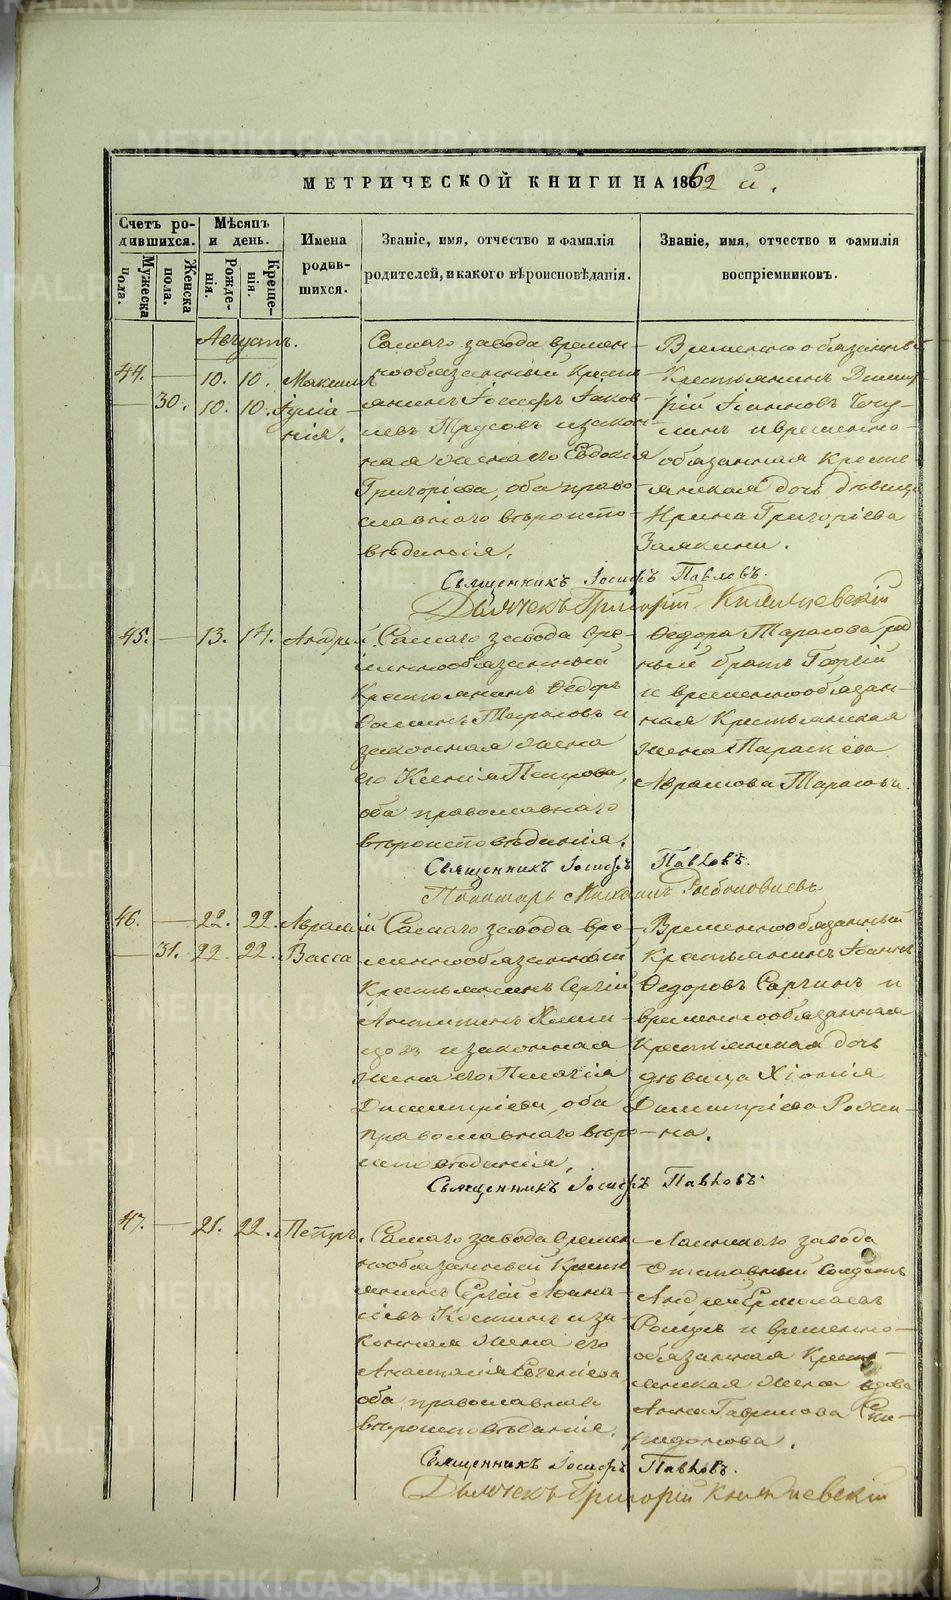 МЕТРИЧЕСКОЙ КНИГИ НА 1862 й.
Счетъ ро-
дившихся.
Мужеска пола.
Женска пола.
Мѣсяцъ
и день.
Рожде-
нія.
Креще-
нія.
Имена
родив-
шихся.
Званіе, имя, отчество и фамилія
родителей, и какого вѣроисповѣданія.
Званіе, имя, отчество и фамилія
воспріемниковъ.
Августъ.
44. — 10. 10. Максимъ
— 30. 10. 10. Іулiа-
нія.
Самаго завода времен-
нообязанный Кресть-
янинъ Іосифъ Іаков-
левъ Трусовъ и закон-
ная жена его Евдокия
Григоріева, оба право-
славнаго вѣроиспо-
вѣданія.
Временнообязанный
Крестьянинъ Дмит-
рій Іоанновъ
и временно-
обязанная Кресть-
янская дочь дѣвица
Ирина Григоріева
Священникъ Іосифъ Павловъ.
Дьячекъ Григорій
45. — 13. 14. Андрей
Самаго завода вре-
меннообязанный
Крестьянинъ Ѳедоръ
Тарасовъ и
законная жена
его Ксенія Петрова,
оба православнаго
вѣроисповѣданія.
Ѳедора Тарасова род-
ный братъ Георгій
и временнообязан-
ная Крестьянская
жена Параскева
Аврамова Тарасова.
Священникъ Іосифъ Павловъ.
Пономарь Михаилъ
46. — 22. 22. Аврамій
— 31. 22. 22. Васса
Самаго завода вре-
меннообязанный
Крестьянинъ Сергій
Антипинъ
и законная
жена его Пелагія
Димитріева, оба
православнаго вѣро-
исповѣданія.
Временнообязанный
Крестьянинъ Іоаннъ
Ѳедоровъ Саргинъ и
временнообязанная
Крестьянская дочь
дѣвица Хіонія
Димитріева
Священникъ Іосифъ Павловъ.
47. — 21. 22. Петръ.
Самаго завода времен-
нообязанный Кресть-
янинъ Сергій Аѳана-
сіевъ Костинъ и за-
конная жена его
Анастасія Евгеніева
оба православнаго
вѣроисповѣданія.
завода
Отставный Солдатъ
Андрей Ермолаевъ
и временно-
обязанная Кресть-
янская жена вдова
Анна Гаврилова Спи-
ридонова.
Священникъ Іосифъ Павловъ.
Дьячекъ Григорій
METRIKI.GASO-URAL.RU